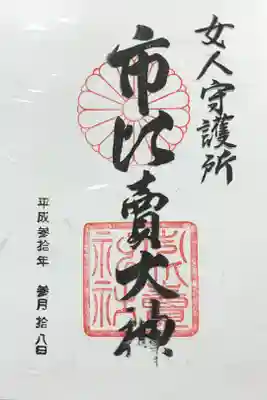 女人守護所
市比賣大神
市比賣神社
平成参拾年 参月拾八日